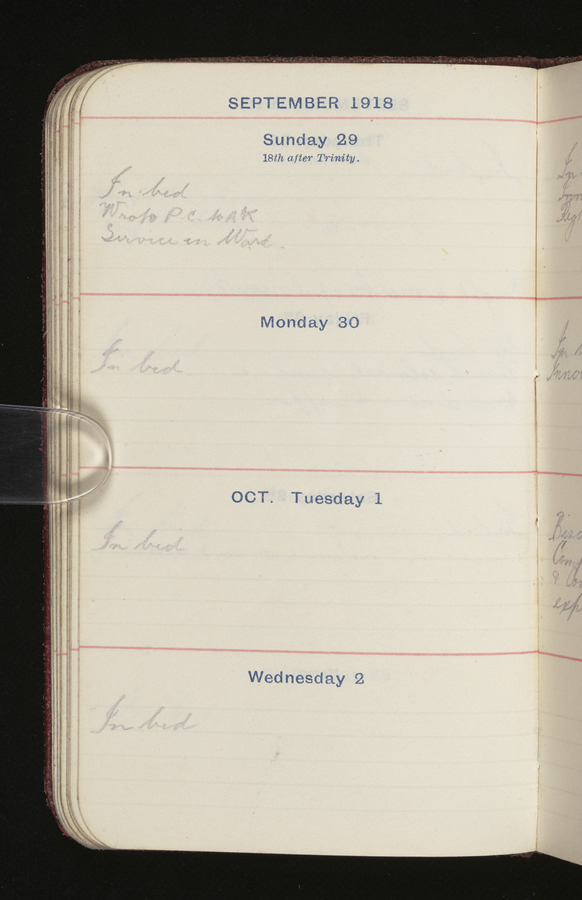 SEPTEMBER 1918
Sunday 29
18th after Trinity.
In bed
Wrote P.C. to
Service in Ward.
Monday 30
In bed
OCT. Tuesday 1
In bed
Wednesday 2
In bed